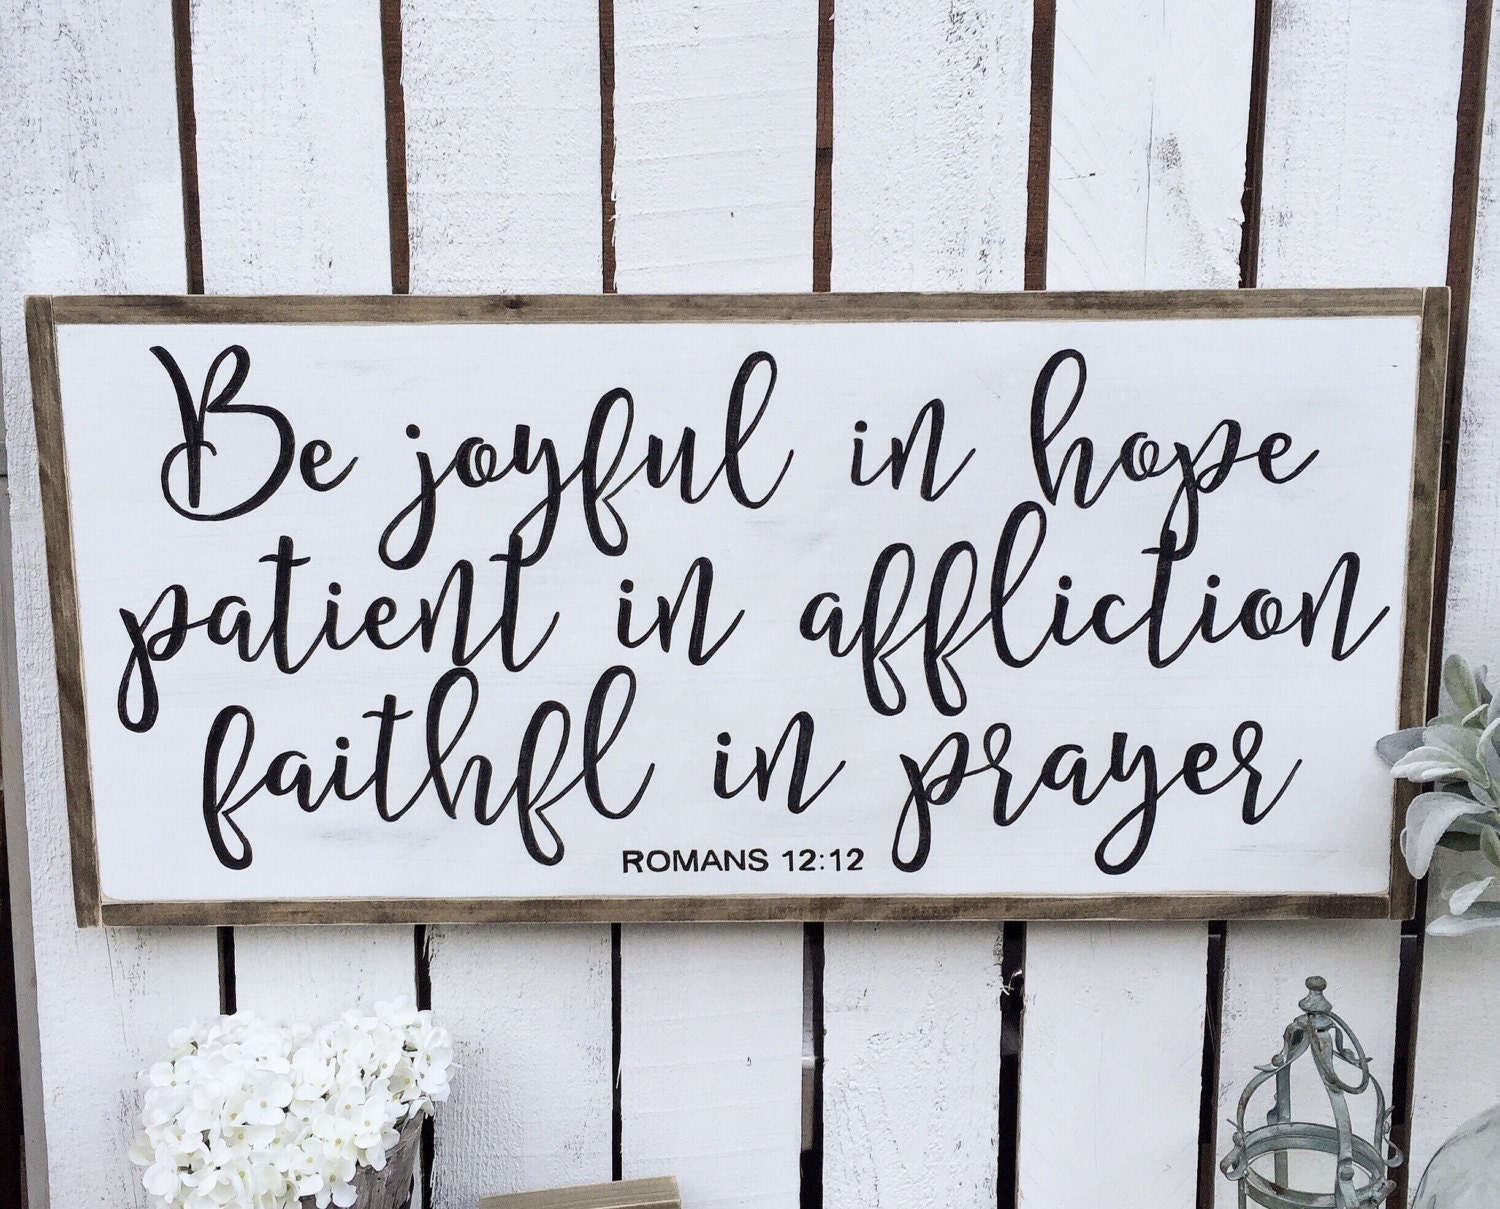 Be joyful in hope
patient in affliction
faithfl in prayer
ROMANS 12:12